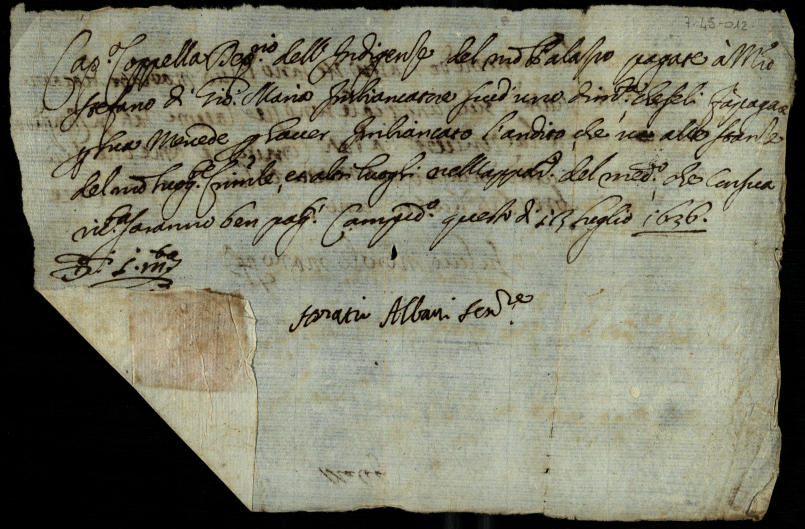 7.45-012.
Cap.º Coppella Dep.rio dell'Indigenze del nrõ Palazzo pagate à M.ro
Stefano di Gio: Maria Imbiancatore uno di m.ta
p sua Mercede p haver Imbiancato l'andito, che và alle stanze
del nrõ Crim.le, et altri luoghi nell'appart.º del med.º, che con sua
ric.ta saranno ben pag.ti Campid.º questo dì 13 luglio 1636.
m.ta
Horatio Albani Sen.re